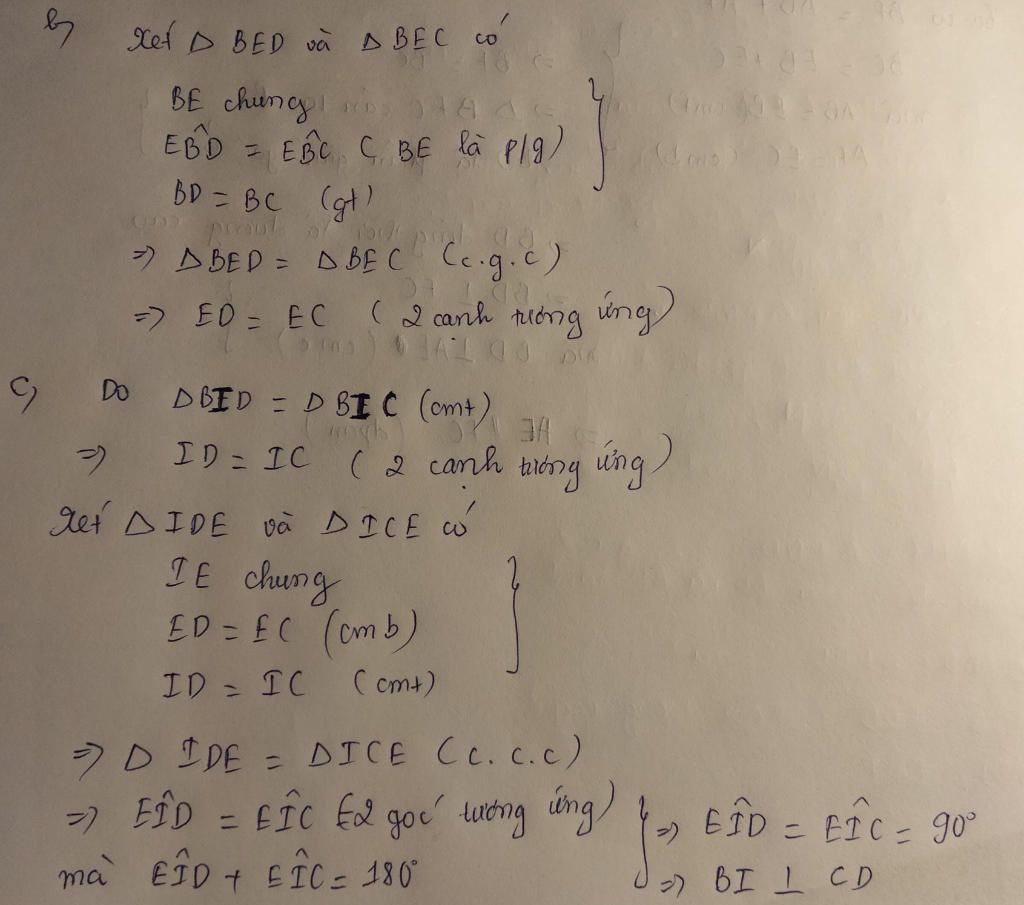 b) Xét Δ BED và Δ BEC có
BE chung
EB̂D = EB̂C ( BE là p/g)
BD = BC (gt)
=> ΔBED = ΔBEC (c.g.c)
=> ED = EC ( 2 cạnh tương ứng)
c) Do ΔBID = ΔBIC (cmt)
=> ID = IC ( 2 cạnh tương ứng)
Xét ΔIDE và ΔICE có
IE chung
ED = EC (cmb)
ID = IC (cmt)
=> Δ IDE = ΔICE (c.c.c)
=> EÎD = EÎC (2 góc tương ứng)
mà EÎD + EÎC = 180°
=> EÎD = EÎC = 90°
=> BI ⊥ CD